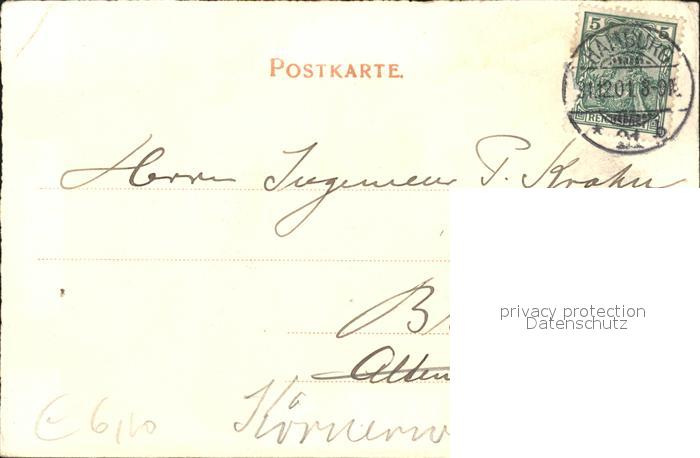 5 5
HAMBURG
31.12.01. 8-9N.
REICHSPOST
* 21 b
POSTKARTE.
Herrn Ingenieur P. Krahn
B
privacy protection
Datenschutz
Alten
Körnerw
€ 6,00